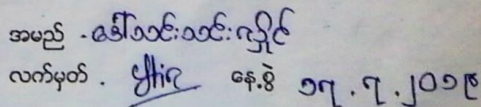 အမည် . ဒေါ်သင်းသင်းလှိုင်
လက်မှတ် . နေ့စွဲ ၁၇.၇.၂၀၁၉